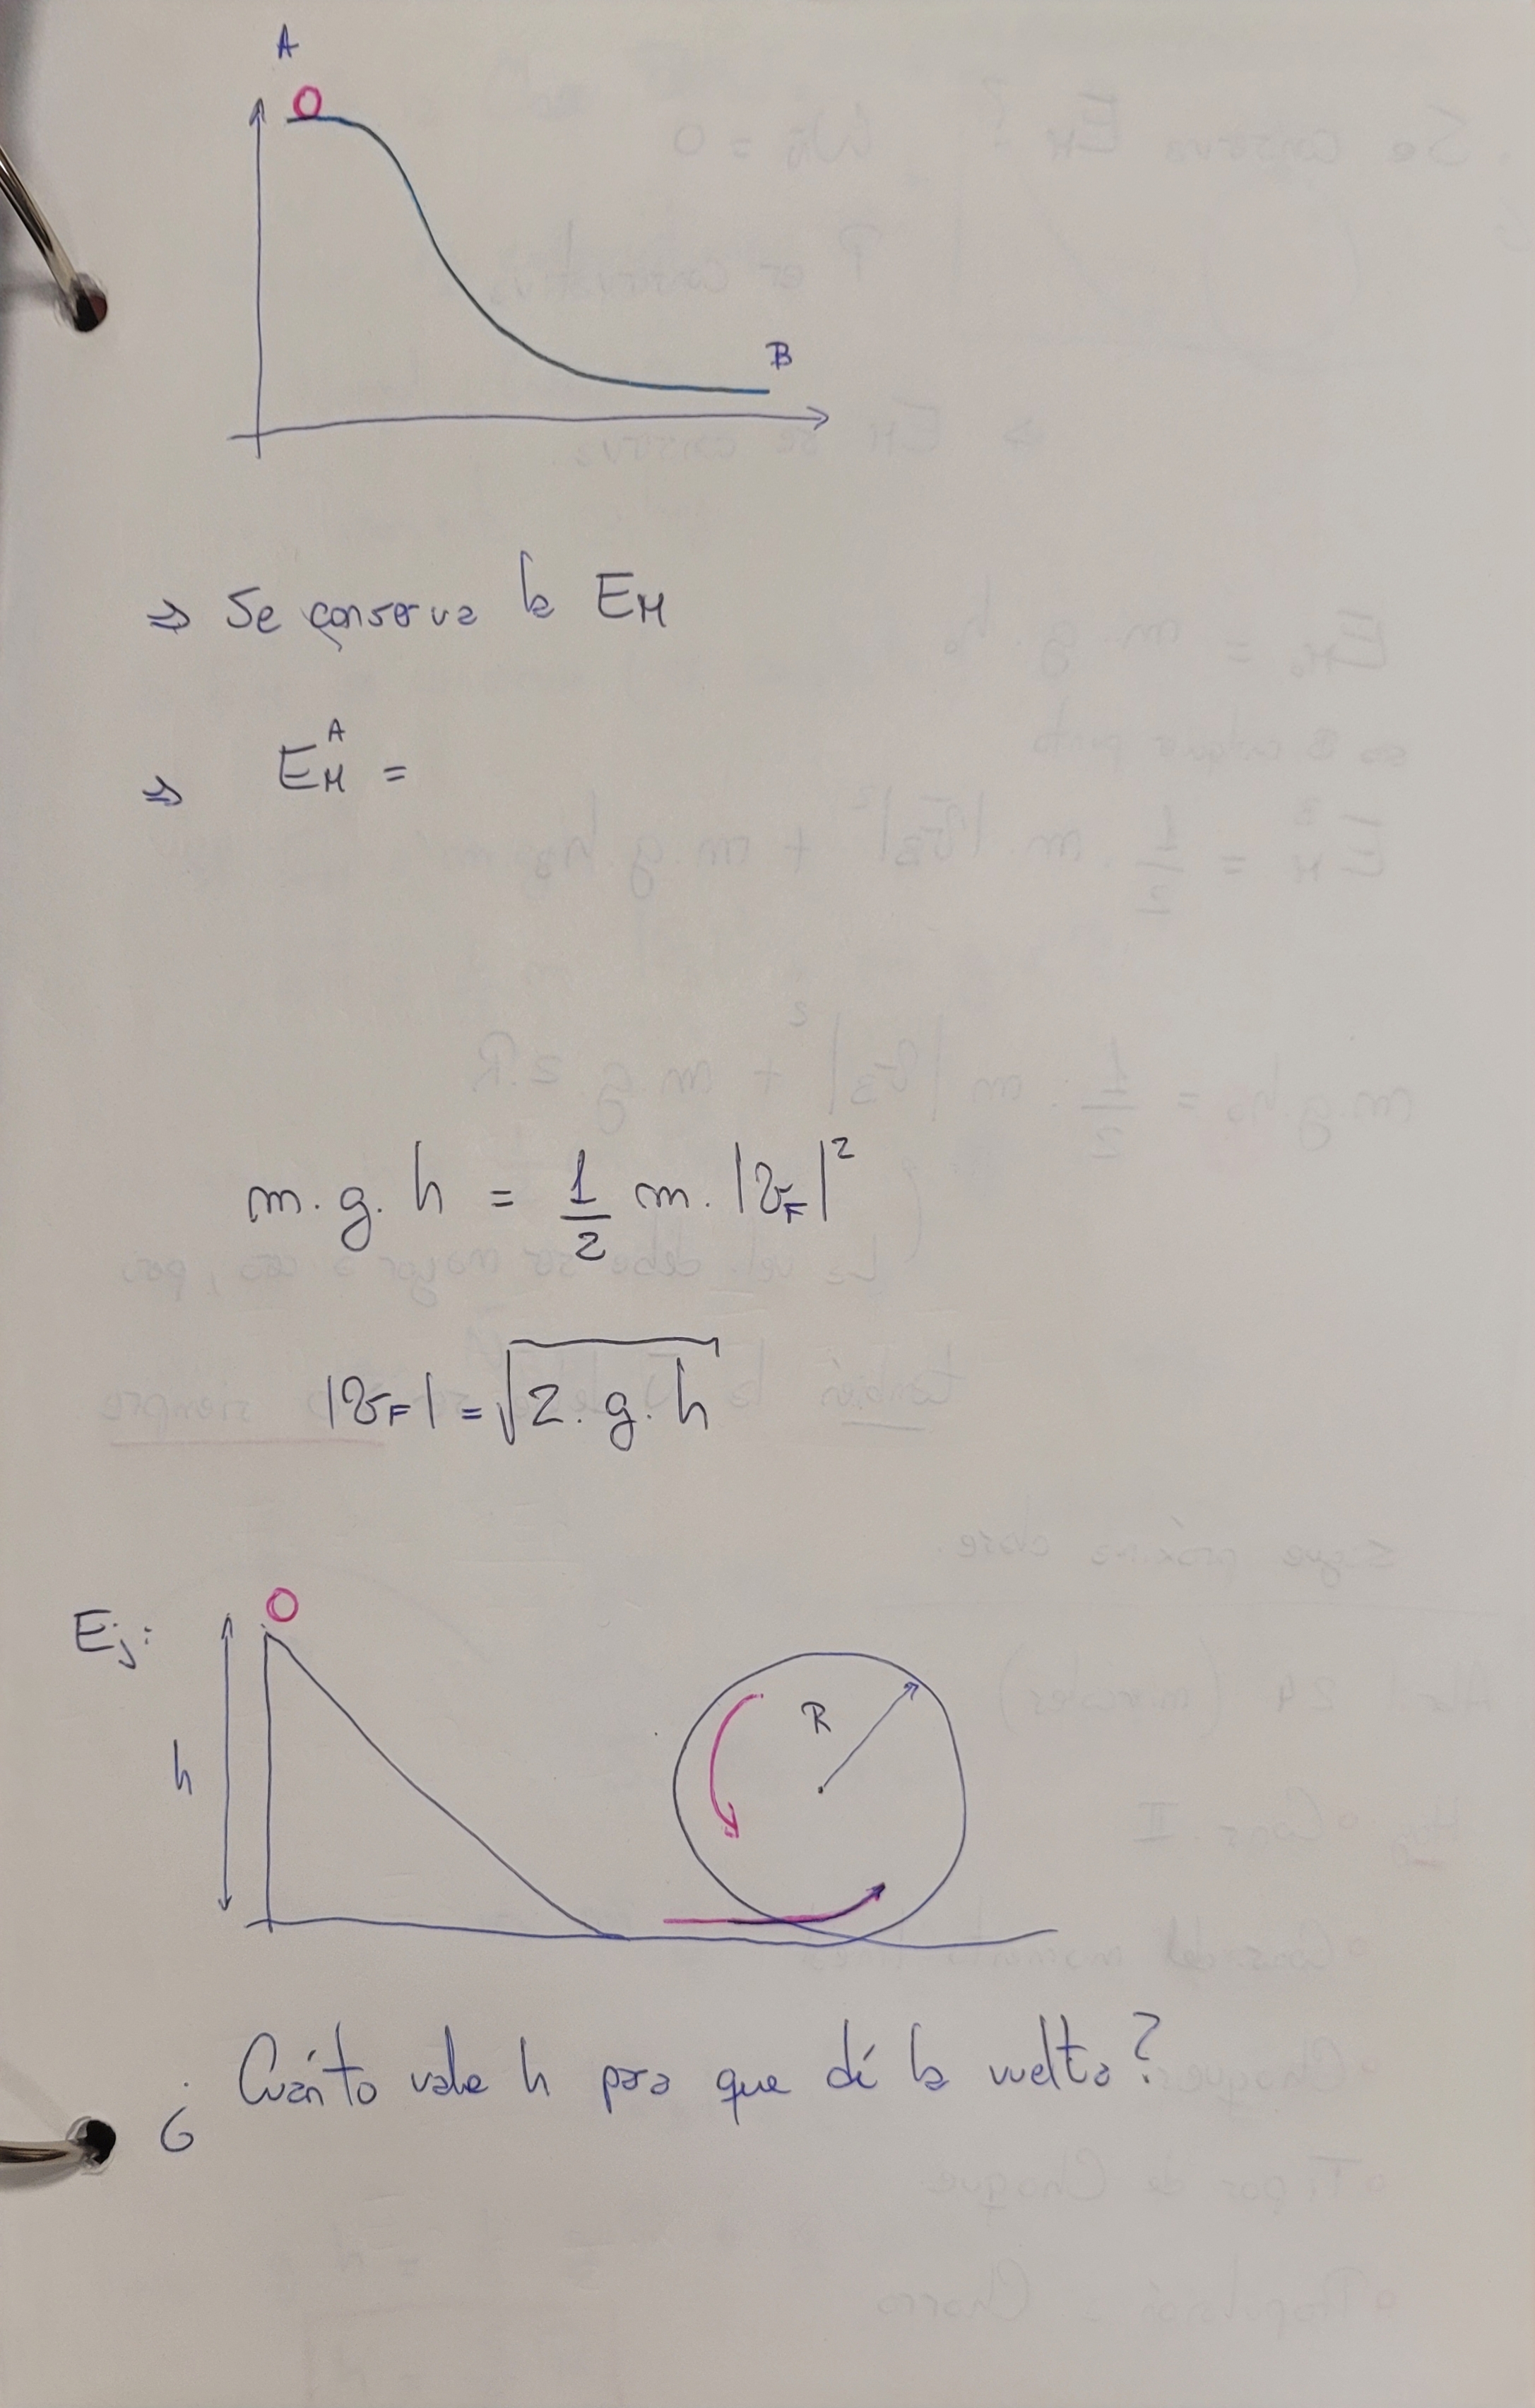 A
B
⇒ Se conserva la E_M
⇒ E_M^A =
m. g. h = 1/2 m. |v_F|²
|v_F| = √2. g. h
Ej:
h
R
¿Cuánto vale h para que dé la vuelta?